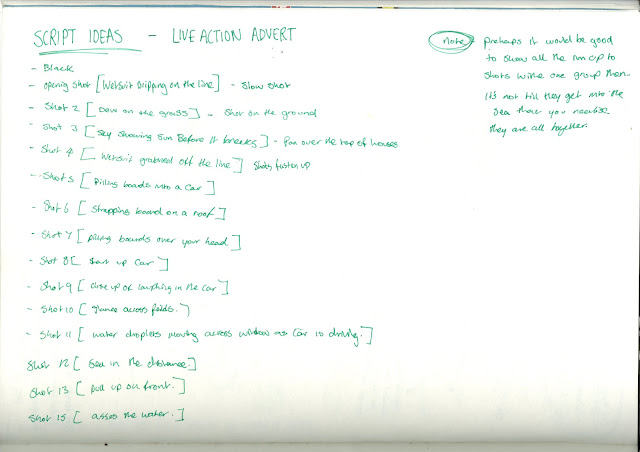 SCRIPT IDEAS - LIVE ACTION ADVERT
- Black
- opening shot [Wetsuit Dripping on the line] - Slow shot
- Shot 2 [Dew on the grass] - Shot on the ground
- Shot 3 [Sky showing Sun Before it breaks] - Pan over the top of houses
- Shot 4 [Wetsuit grabbed off the line] Shots fasten up
- Shot 5 [Pilling boards into a Car]
- Shot 6 [Strapping board on a roof]
- Shot 7 [pilling boards over your head]
- Shot 8 [Start up Car]
- Shot 9 [Close up of laughing in the Car]
- Shot 10 [Glance across fields.]
- Shot 11 [water droplets moving across window as Car is driving.]
Shot 12 [Sea in the distance.]
Shot 13 [pull up on front.]
Shot 15 [asses the water.]
note - prehaps it would be good
to show all the run up to
shots with one group then
it's not till they get into the
sea that you realise
they are all together.